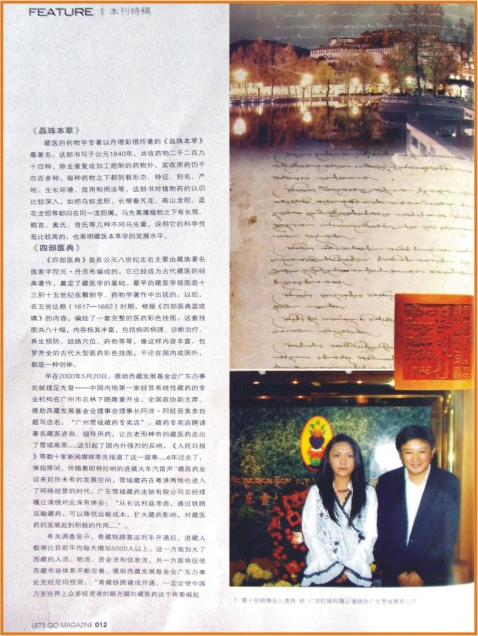 FEATURE || 本刊特稿
《晶珠本草》
藏医的药物学专著以丹增彭措所著的《晶珠本草》
最著名。这部书写于公元1840年，共收药物二千二百九
十四种，除去重复或加工炮制的药物外，实收原药仍于
四百多种。每种药物之下都列载形态、特征、别名、产
地、生长环境、效用和用法等。这部书对植物药的认识
比较深入，如把乌奴龙胆、长梗秦艽、高山龙胆、蓝
花龙胆等都归在同一龙胆属，马先蒿属植物之下有长筒、
鹅首、奥氏、普氏等几种不同马先蒿。说明它的科学性
是比较高的，也表明藏医本草学的发展水平。
《四部医典》
《四部医典》是在公元八世纪左右主要由藏族著名
医家宇陀元·丹贡布编成的。它已经成为古代藏医的经
典著作，奠定了藏医学的基础。最早的藏医学挂图是十
三到十五世纪在解剖学、药物学著作中出现的。以后，
在五世达赖（1617—1682）时期，根据《四部医典蓝琉
璃》的内容，编绘了一套完整的医药彩色挂图，这套挂
图共八十幅，内容极其丰富，包括病因病理、诊断治疗、
养生预防、经络穴位、药物等等，像这样内容丰富、包
罗齐全的古代大型医药彩色挂图，不论在国内或国外，
都是一种创举。
早在2000年5月20日，援助西藏发展基金会广东办事
处就捷足先登——中国内地第一家经营系统性藏药的专
业机构在广州市农林下路隆重开业，全国政协副主席、
援助西藏发展基金会理事会理事长阿沛·阿旺晋美亲自
题写店名：“广州雪域藏药专卖店”。藏药专卖店聘请
著名藏医咨询、指导用药，让古老而神奇的藏药走出
了雪域高原……这引起了国内外强烈的反响，《人民日报
》等数十家新闻媒体率先报道了这一盛事……6年过去了，
弹指挥间，伴随着即将拉响的进藏火车汽笛声“藏医药业
迎来前所未有的发展空间，雪域藏药在粤港两地也进入
了网络经营的时代，广东雪域藏药连锁有限公司总经理
禤让清绕对此深有体会：“从长远利益考虑，通过铁路
运输藏药，可以降低运输成本，扩大藏药影响，对藏医
药的发展起到积极的作用……”。
有关调查显示，青藏铁路客运列车开通后，进藏人
数将比目前平均每天增加5000人以上，这一方面加大了
西藏的人流、物流、资金流和信息流，另一方面将促使
西藏市场体系不断完善。援助西藏发展基金会广东办事
处克旺尼玛预测：“青藏铁路建成开通，一定会使中国
乃至世界上众多投资者的眼光瞄向藏医药这个将要崛起
LETS GO MAGAZINE 012